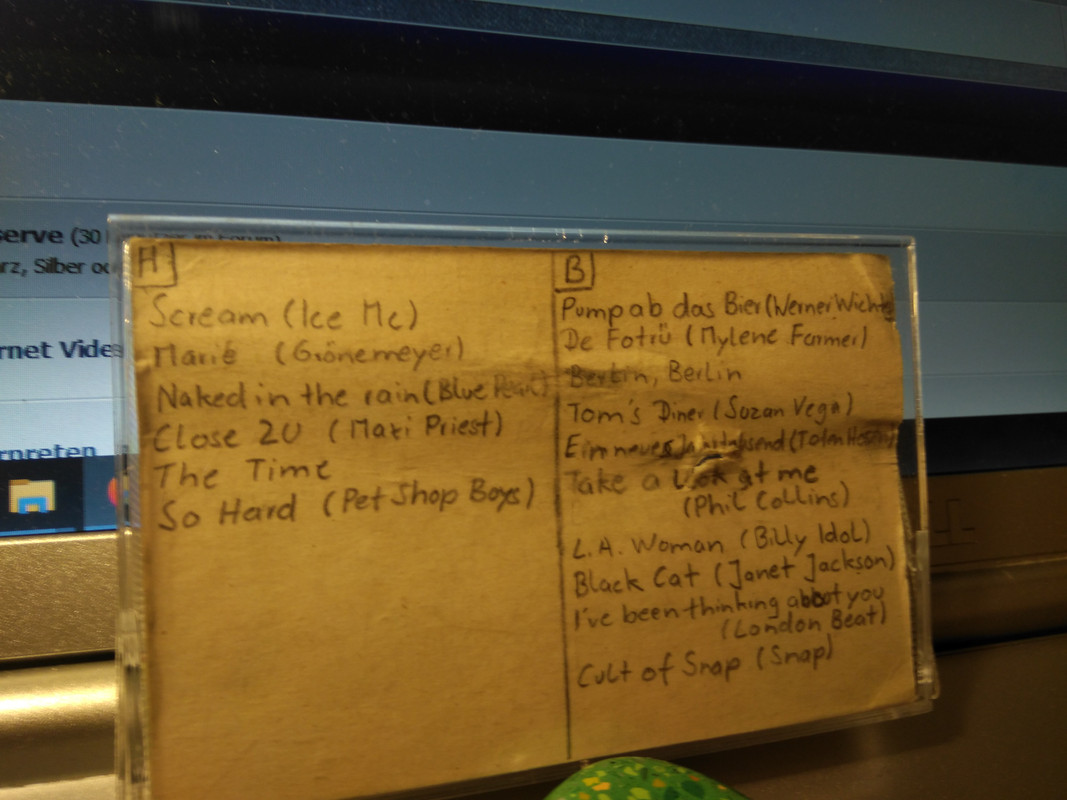 serve (30
rz, Silber oc
rnet Vide
rpreten
A
Scream (Ice Mc)
Marie (Grönemeyer)
Naked in the rain (Blue
Close 2U (Maxi Priest)
The Time
So Hard (Pet Shop Boys)
B
Pump ab das Bier (Werner Wichti
De Fotrü (Mylene Farmer)
Berlin, Berlin
Tom's Diner (Suzan Vega)
Ein neues
Take a look at me
(Phil Collins)
L.A. Woman (Billy Idol)
Black Cat (Janet Jackson)
I've been thinking about you
(London Beat)
Cult of Snap (Snap)